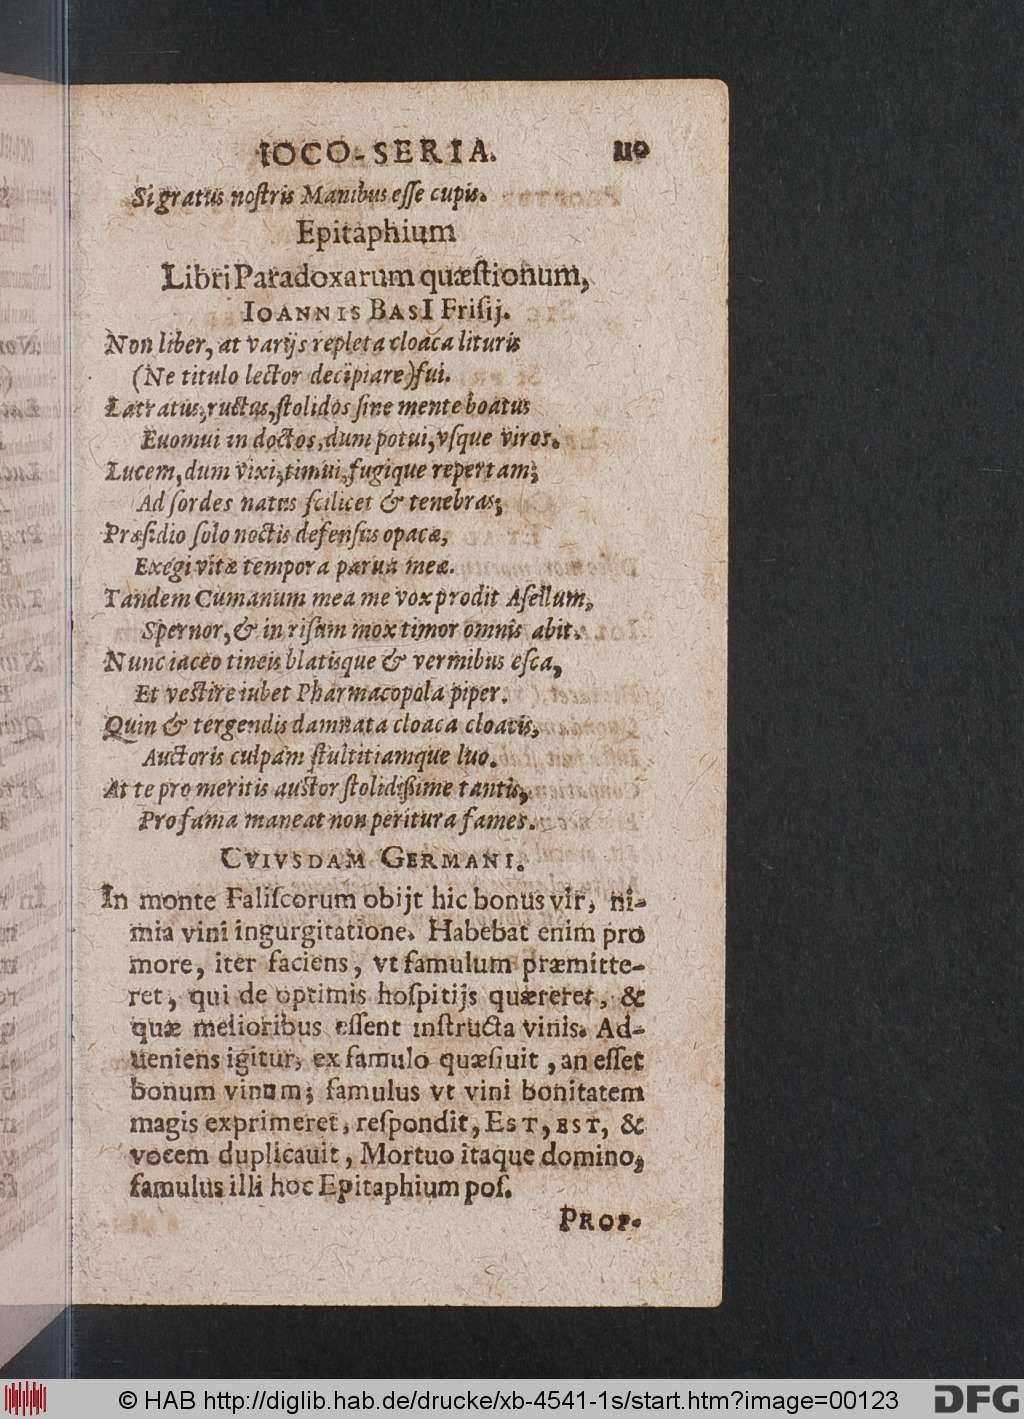 IOCO-SERIA. 110
Si gratus noſtris Manibus eſſe cupis.
Epitaphium
Libri Paradoxarum quæſtionum,
IOANNIS BASI Friſij.
Non liber, at varijs repleta cloaca lituris
(Ne titulo lector decipiare) fui.
Latratus, ructus, ſtolidos ſine mente boatus
Euomui in doctos, dum potui, vſque viros.
Lucem, dum vixi, timui, fugique repertam;
Ad ſordes natus ſcilicet & tenebras;
Præſidio ſolo noctis defenſus opacæ,
Exegi vitæ tempora parua meæ.
Tandem Cumanum mea me vox prodit Aſellum,
Spernor, & in riſum mox timor omnis abit.
Nunc iaceo tineis blatisque & vermibus eſca,
Et veſtire iubet Pharmacopola piper.
Quin & tergendis damnata cloaca cloacis,
Auctoris culpam ſtultitiamque luo.
At te pro meritis auctor ſtolidiſſime tantis,
Pro fama maneat non peritura fames.
CVIVSDAM GERMANI.
In monte Faliſcorum obijt hic bonus vir, ni-
mia vini ingurgitatione. Habebat enim pro
more, iter faciens, vt famulum præmitte-
ret, qui de optimis hoſpitijs quæreret, &
quæ melioribus eſſent inſtructa vinis. Ad-
ueniens igitur, ex famulo quæſiuit, an eſſet
bonum vinum; famulus vt vini bonitatem
magis exprimeret, reſpondit, EST, EST, &
vocem duplicauit, Mortuo itaque domino,
famulus illi hoc Epitaphium poſ.
PROP.
© HAB http://diglib.hab.de/drucke/xb-4541-1s/start.htm?image=00123
DFG